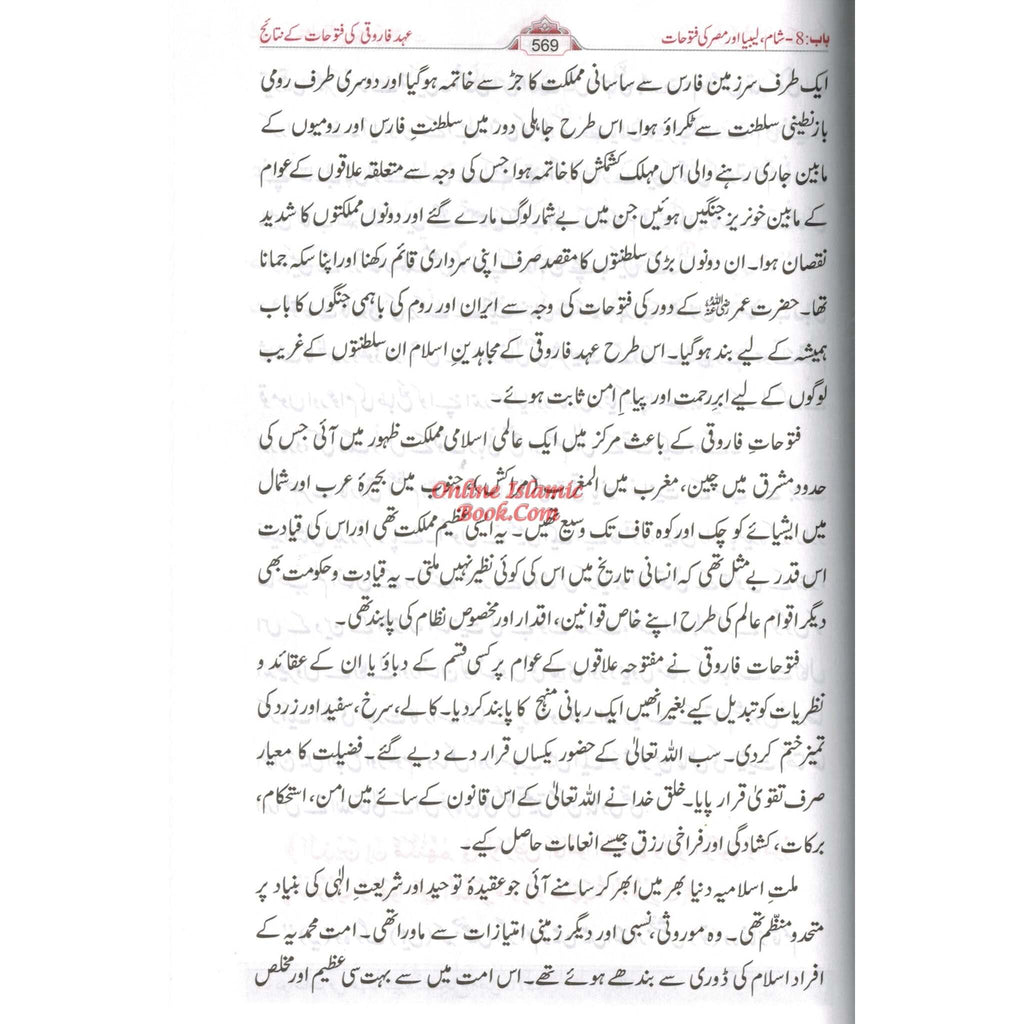 باب: 8- شام، لیبیا اور مصر کی فتوحات 569 عہد فاروقی کی فتوحات کے نتائج
ایک طرف سرزمین فارس سے ساسانی مملکت کا جڑ سے خاتمہ ہوگیا اور دوسری طرف رومی
بازنطینی سلطنت سے ٹکراؤ ہوا۔ اس طرح جاہلی دور میں سلطنتِ فارس اور رومیوں کے
مابین جاری رہنے والی اس مہلک کشمکش کا خاتمہ ہوا جس کی وجہ سے متعلقہ علاقوں کے عوام
کے مابین خونریز جنگیں ہوئیں جن میں بے شمار لوگ مارے گئے اور دونوں مملکتوں کا شدید
نقصان ہوا۔ ان دونوں بڑی سلطنتوں کا مقصد صرف اپنی سرداری قائم رکھنا اور اپنا سکہ جمانا
تھا۔ حضرت عمر رضی اللہ عنہ کے دور کی فتوحات کی وجہ سے ایران اور روم کی باہمی جنگوں کا باب
ہمیشہ کے لیے بند ہوگیا۔ اس طرح عہد فاروقی کے مجاہدینِ اسلام ان سلطنتوں کے غریب
لوگوں کے لیے ابرِ رحمت اور پیامِ امن ثابت ہوئے۔
فتوحاتِ فاروقی کے باعث مرکز میں ایک عالمی اسلامی مملکت ظہور میں آئی جس کی
حدود مشرق میں چین، مغرب میں المغرب (مراکش)، جنوب میں بحیرۂ عرب اور شمال
Online Islamic
Book.Com
میں ایشیائے کوچک اور کوہ قاف تک وسیع تھیں۔ یہ ایسی عظیم مملکت تھی اور اس کی قیادت
اس قدر بے مثل تھی کہ انسانی تاریخ میں اس کی کوئی نظیر نہیں ملتی۔ یہ قیادت و حکومت بھی
دیگر اقوام عالم کی طرح اپنے خاص قوانین، اقدار اور مخصوص نظام کی پابند تھی۔
فتوحات فاروقی نے مفتوحہ علاقوں کے عوام پر کسی قسم کے دباؤ یا ان کے عقائد و
نظریات کو تبدیل کیے بغیر انھیں ایک ربانی منہج کا پابند کر دیا۔ کالے، سرخ، سفید اور زرد کی
تمیز ختم کر دی۔ سب اللہ تعالیٰ کے حضور یکساں قرار دے دیے گئے۔ فضیلت کا معیار
صرف تقویٰ قرار پایا۔ خلق خدا نے اللہ تعالیٰ کے اس قانون کے سائے میں امن، استحکام،
برکات، کشادگی اور فراخی رزق جیسے انعامات حاصل کیے۔
ملتِ اسلامیہ دنیا بھر میں ابھر کر سامنے آئی جو عقیدۂ توحید اور شریعتِ الٰہی کی بنیاد پر
متحد و منظّم تھی۔ وہ موروثی، نسبی اور دیگر زمینی امتیازات سے ماورا تھی۔ امت محمدیہ کے
افراد اسلام کی ڈوری سے بندھے ہوئے تھے۔ اس امت میں سے بہت سی عظیم اور مخلص